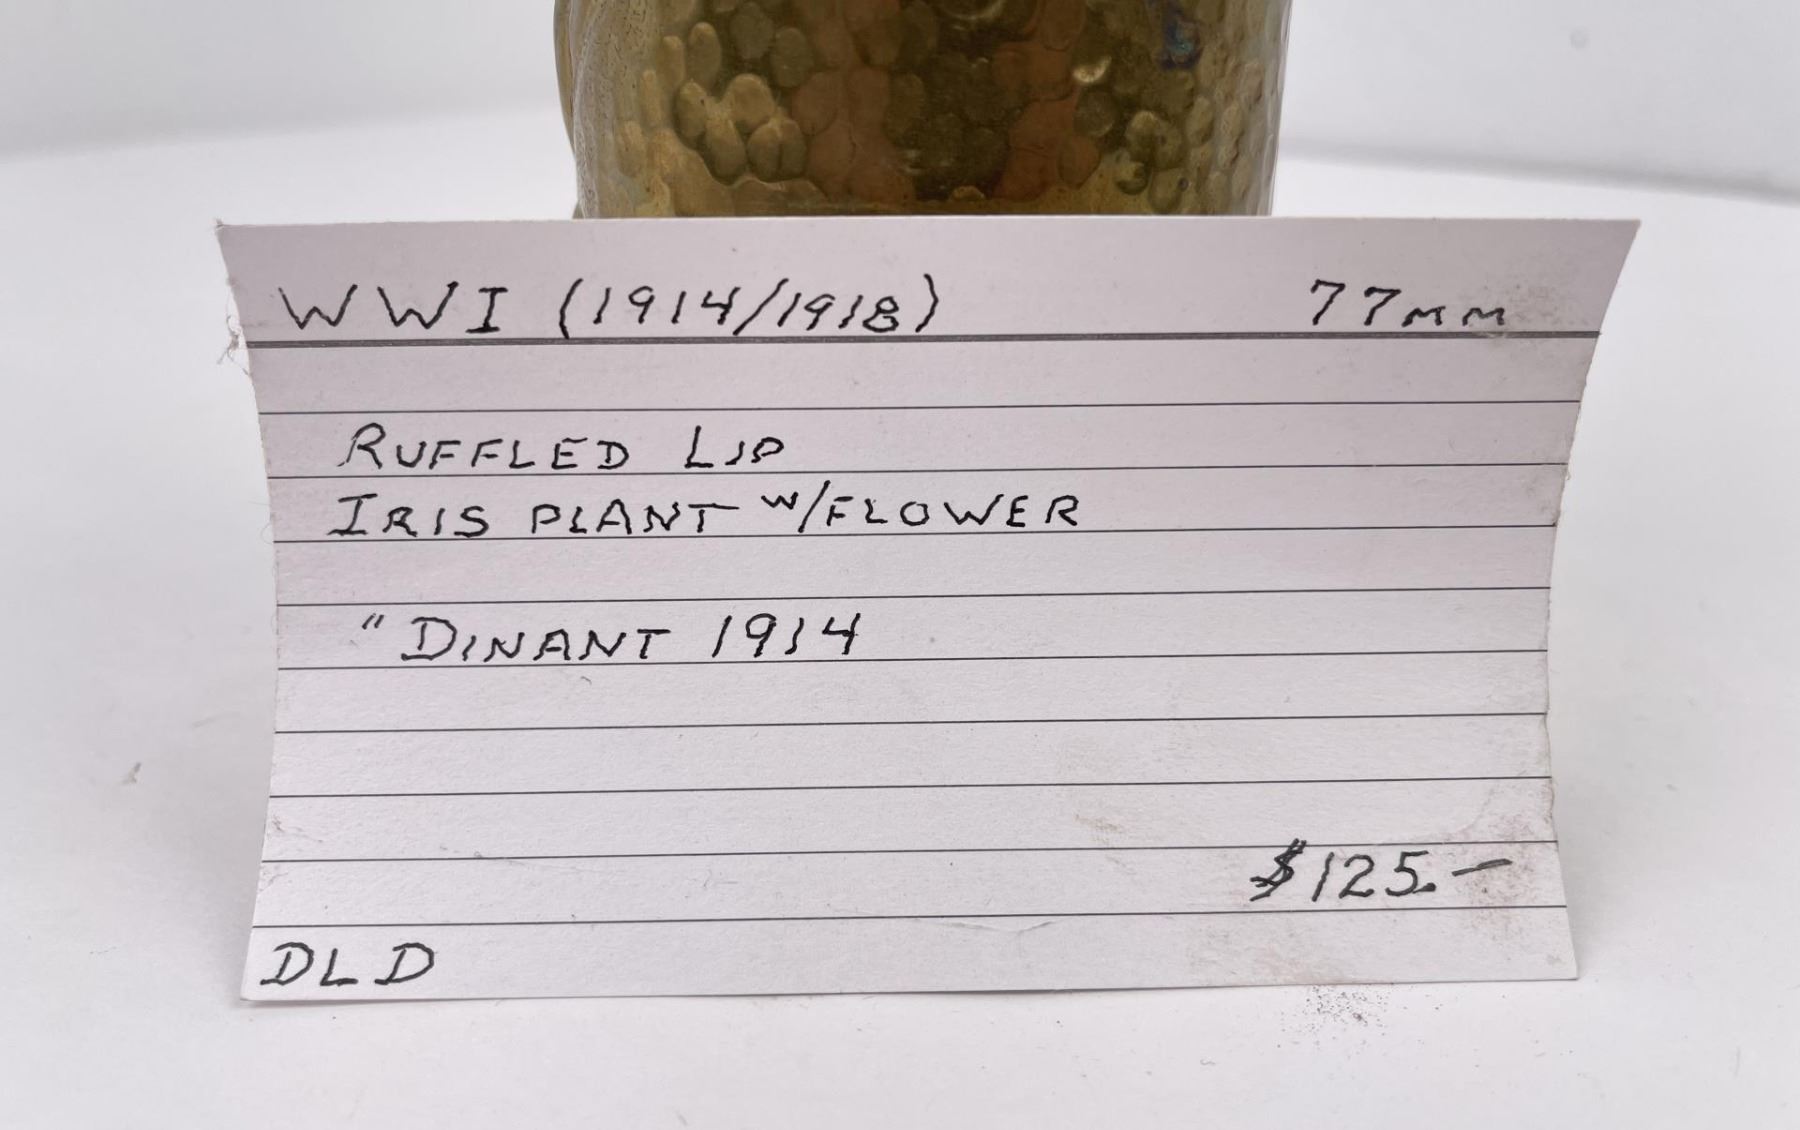 WWI (1914/1918) 77mm
RUFFLED LIP
IRIS PLANT w/FLOWER
" DINANT 1914
$125.—
DLD